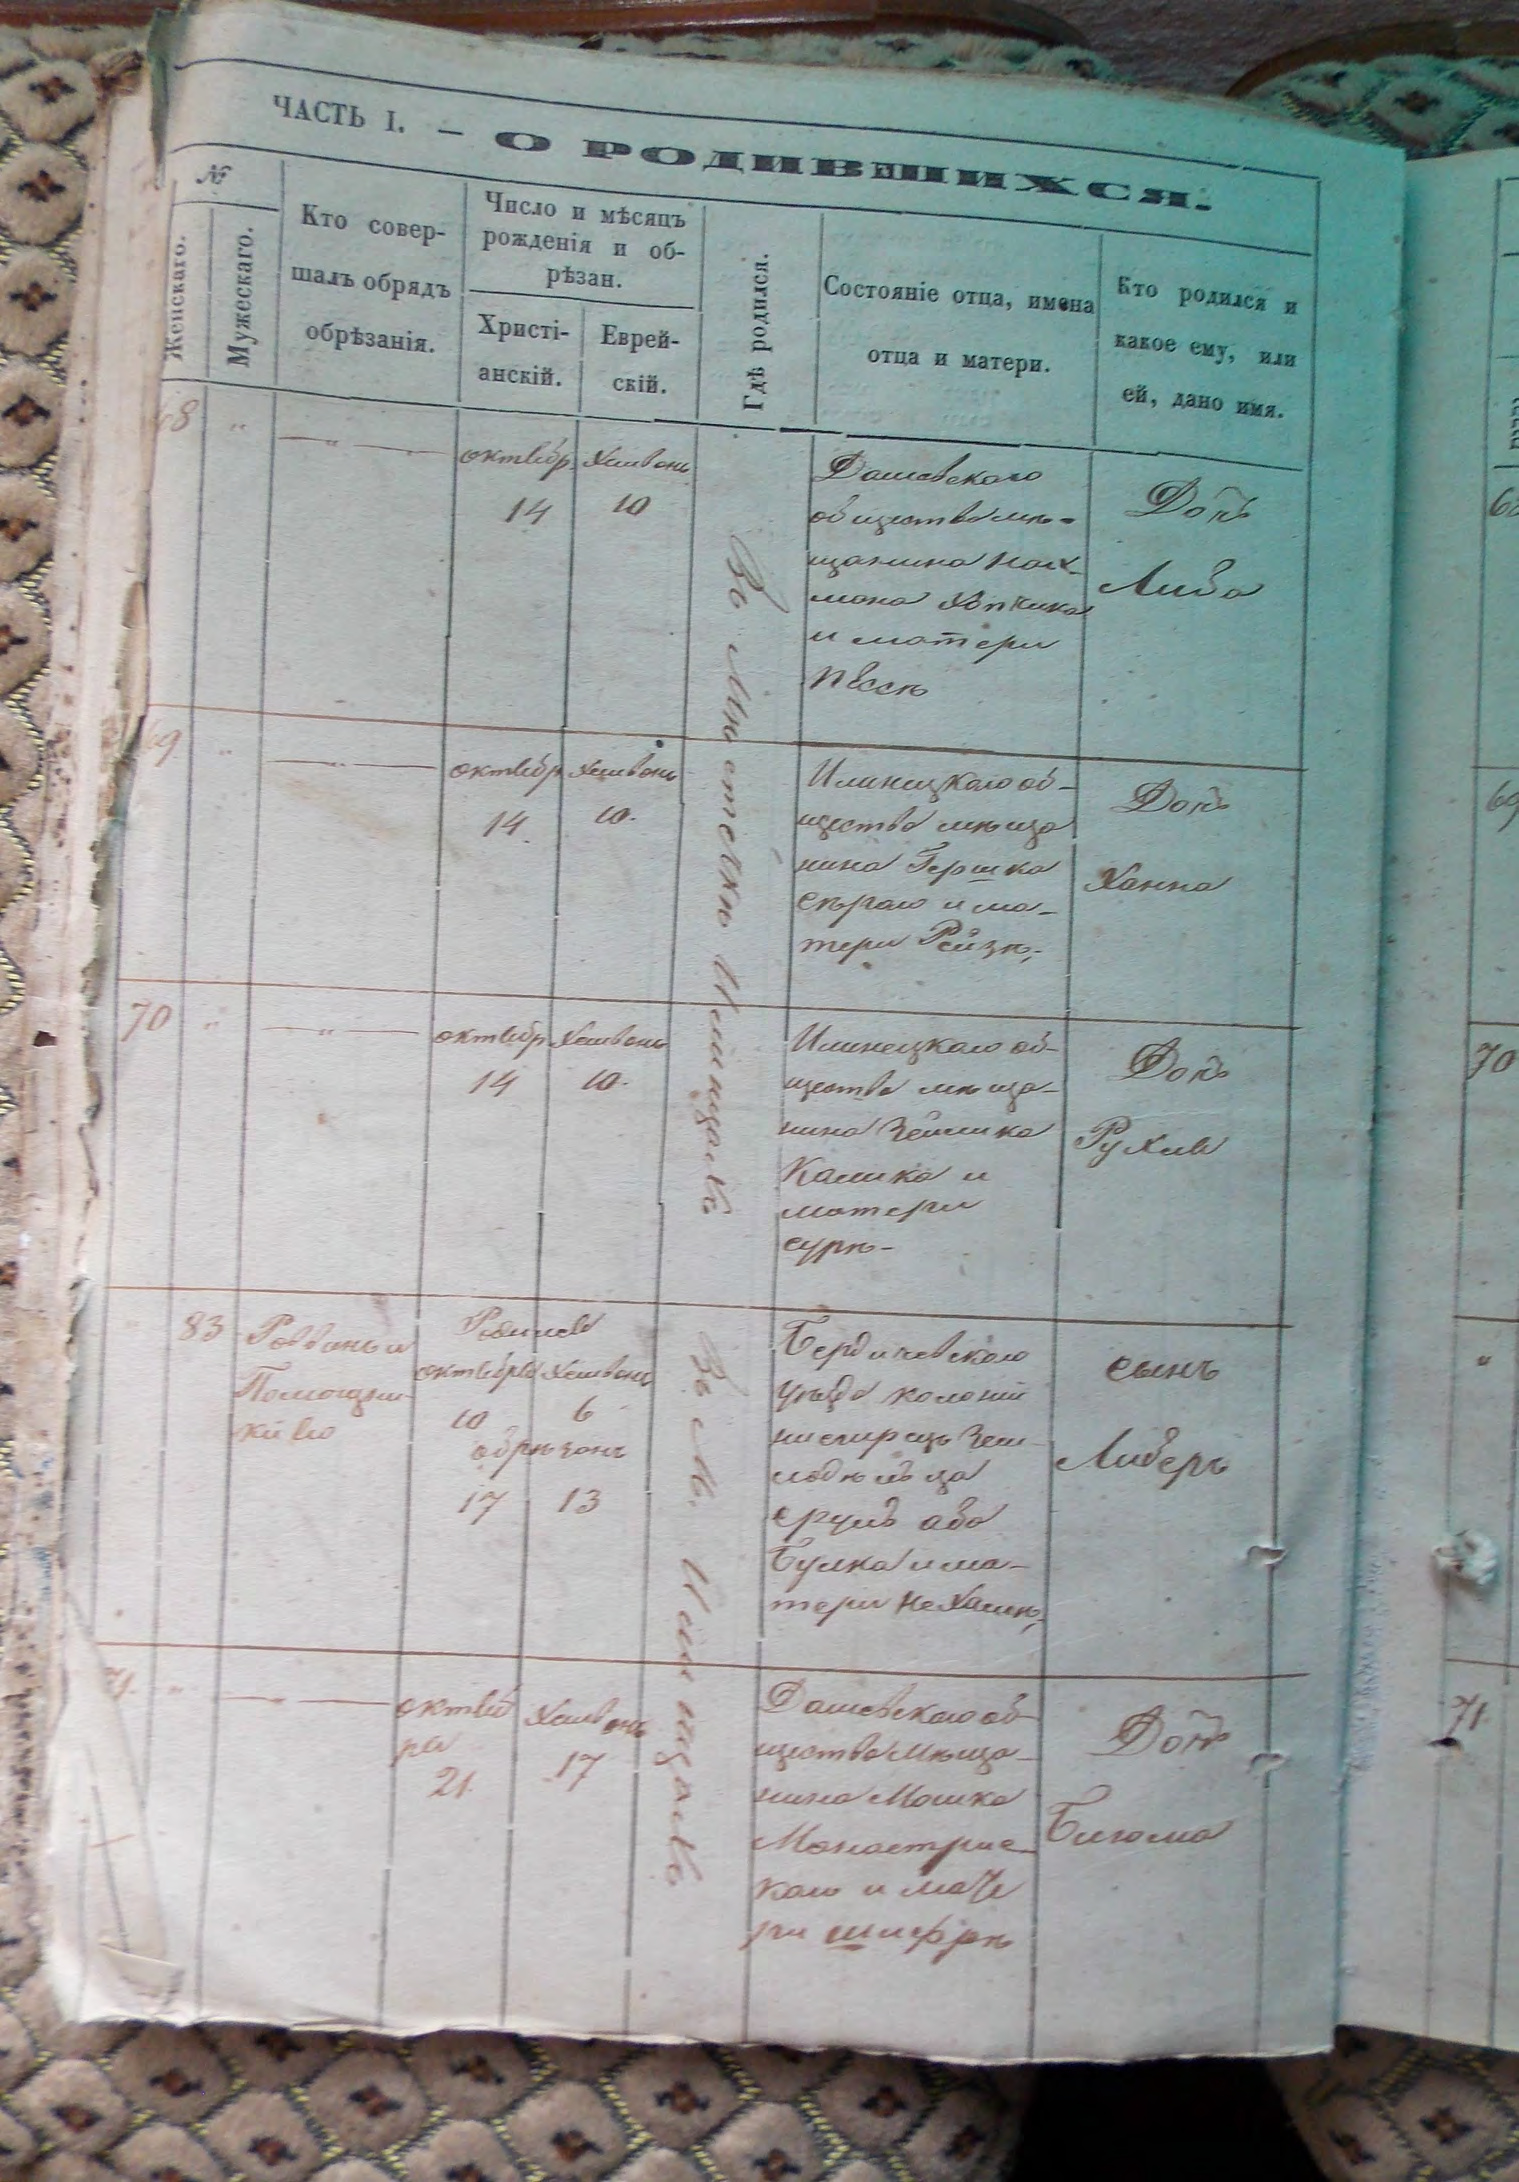 ЧАСТЬ I. — О РОДИВШИХСЯ.
№
Женскаго.
Мужескаго.
Кто совер-
шалъ обрядъ
обрѣзанія.
Число и мѣсяцъ
рожденія и об-
рѣзан.
Христі-
анскій.
Еврей-
скій.
Гдѣ родился.
Состояніе отца, имена
отца и матери.
Кто родился и
какое ему, или
ей, дано имя.
68 " — " —
октябр
14
Хешвонъ
10
Въ Мѣстечкѣ Илинцахъ
Дашевскаго
общества мѣ-
щанина Нах-
мана
и матери
Песѣ
Дочь
Либа
69 " — " —
октябр
14
Хешвонъ
10.
Илинецкаго об-
щества мѣща
нина Гершка
Сѣраго и ма-
тери Рейзѣ,
Дочь
Ханна
70 " — " —
октябр
14
Хешвонъ
10.
Илинецкаго об-
щества мѣща-
нина Зейлика
и
матери
сурѣ-
Дочь
Рухля
83
Раввинъ и
Родился
октября Хешвонъ
10 6
обрѣзанъ
17 13
Въ М. Илинцахъ
Бердичевскаго
уѣзда колоніи
Зем
ледѣльца
аба
и ма-
тери Нехамѣ,
сынъ
Либеръ
71. " — " —
октяб
ря
21.
Хешвонъ
17
Дашевскаго об-
щества Мѣща-
нина Мошка
Монастрис-
каго и мате
ри шифрѣ
Дочь
69
70
"
71.